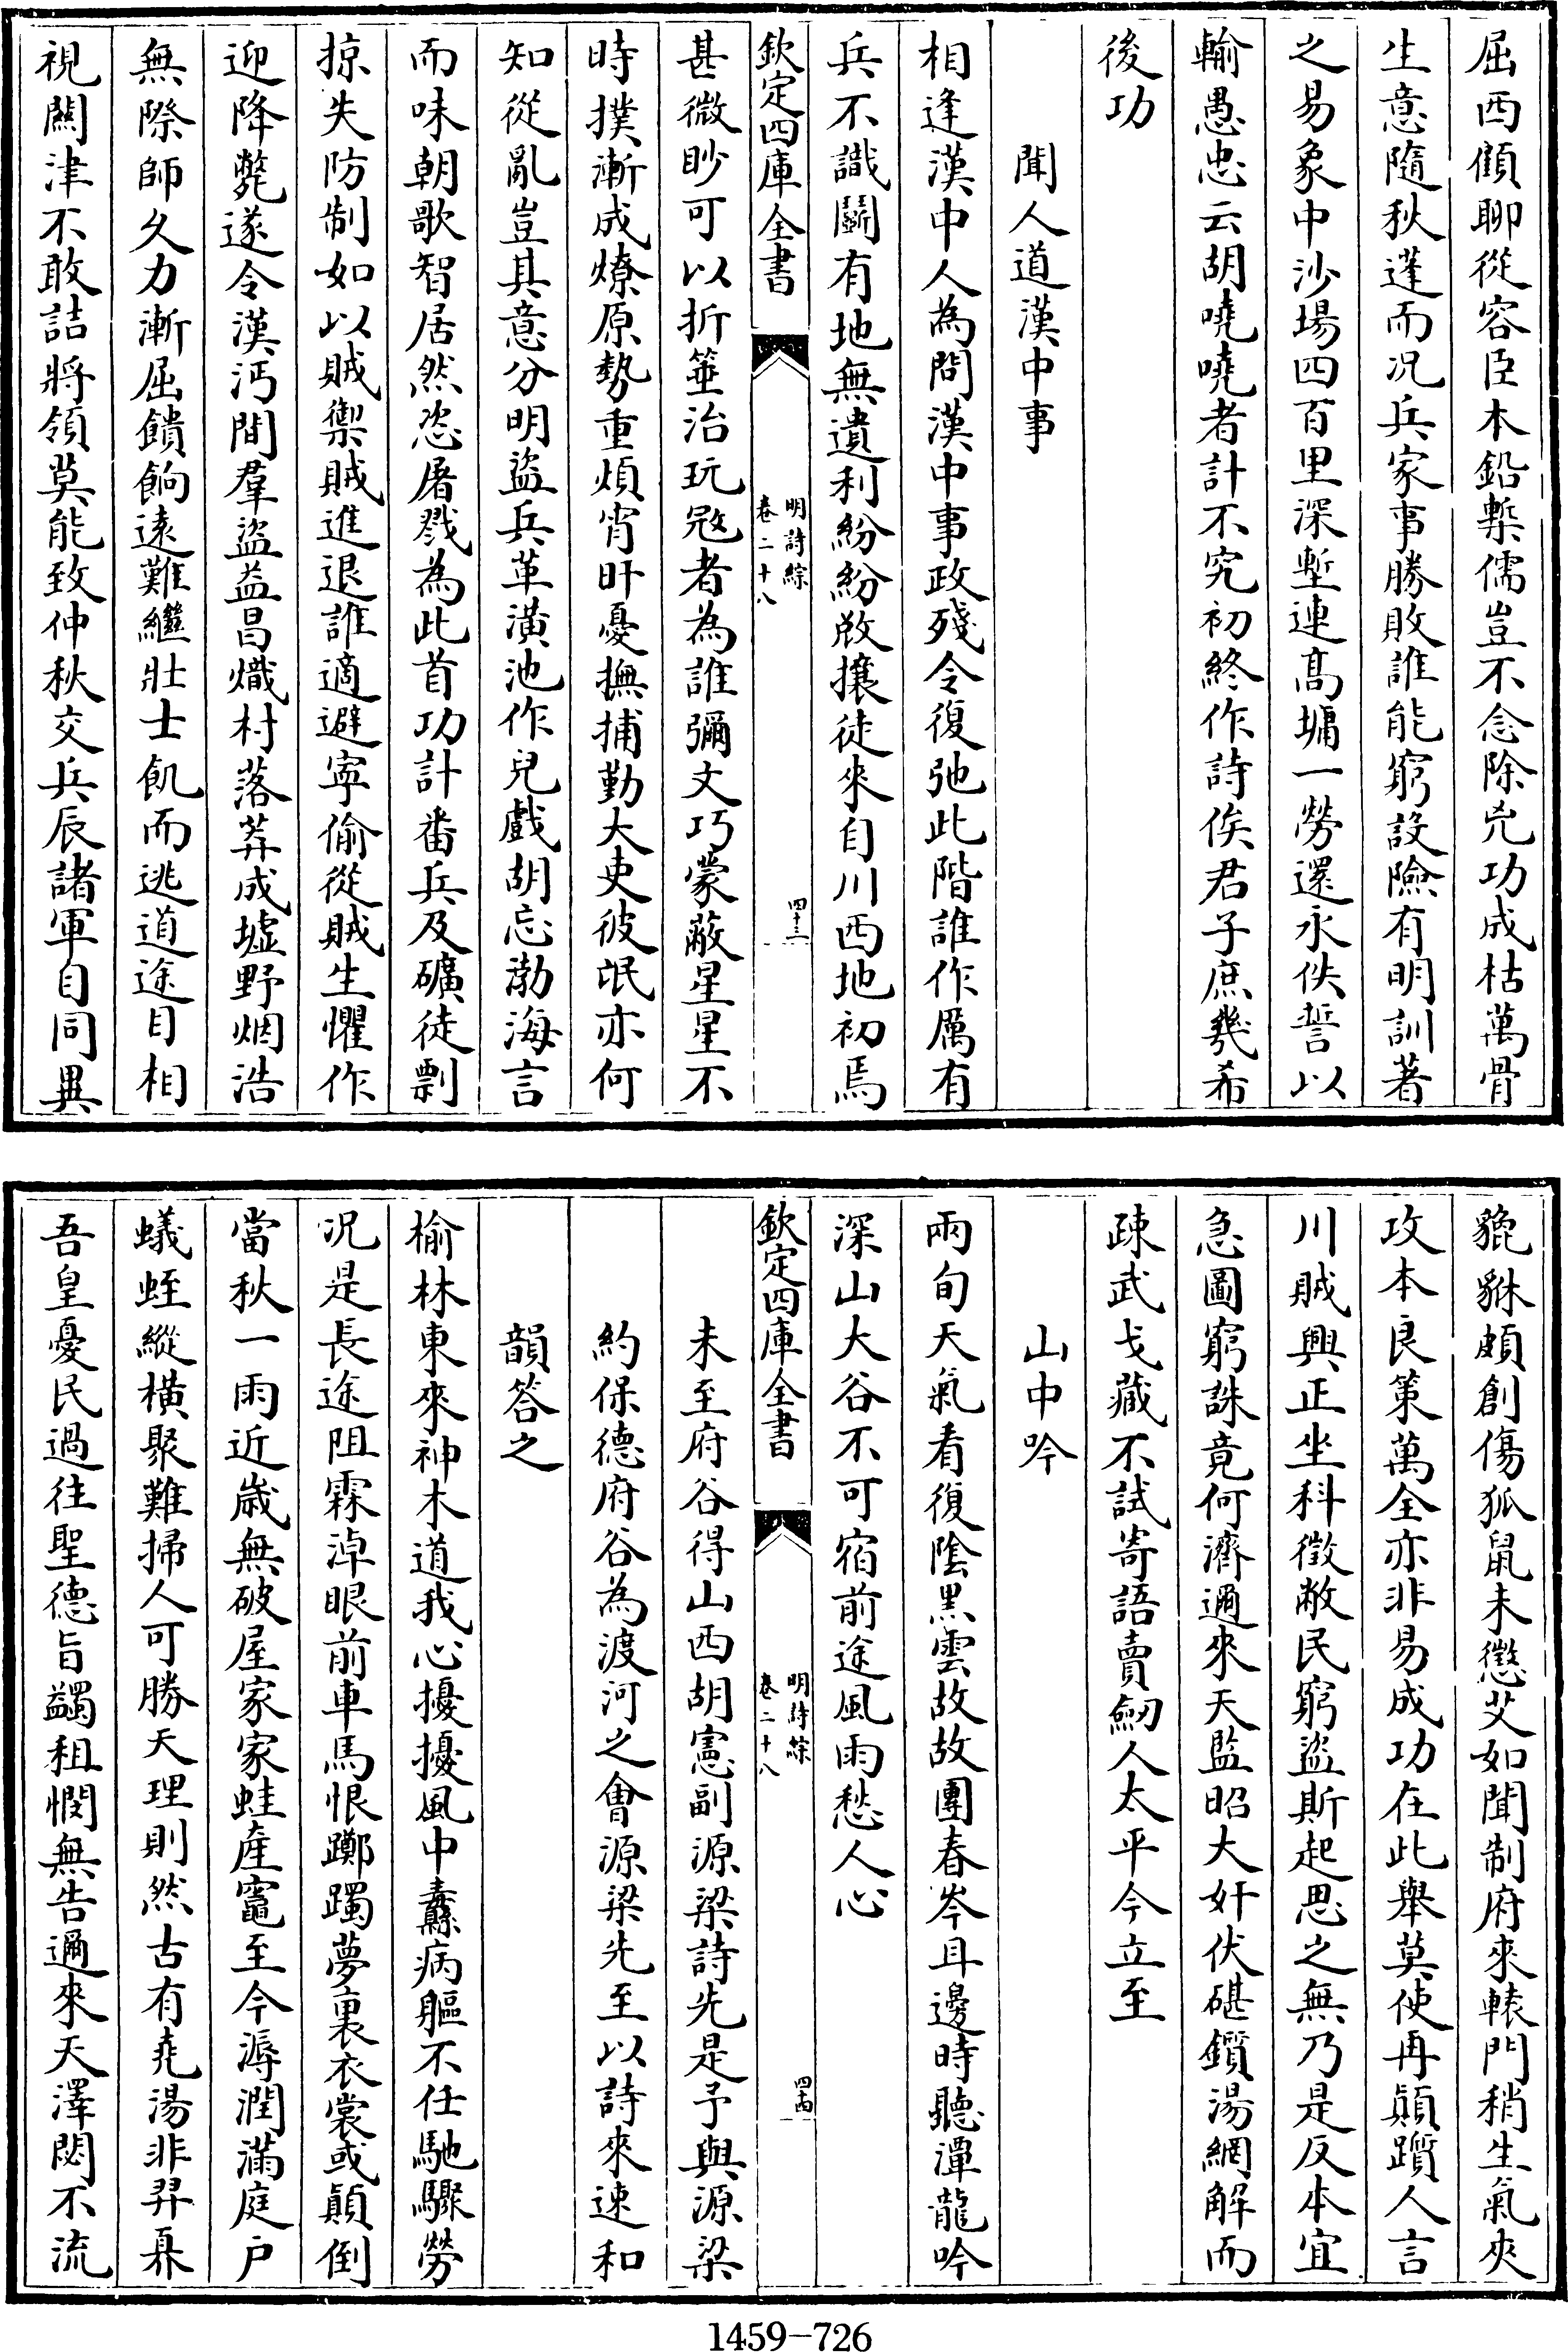 屈西傾聊從容臣本鉛槧儒豈不念除兇功成枯萬骨
生意隨秋蓬而况兵家事勝敗誰能窮設險有明訓著
之易象中沙塲四百里深塹連髙墉一勞還永佚誓以
輸愚忠云胡嘵嘵者計不究初終作詩俟君子庶幾希
後功
聞人道漢中事
相逢漢中人為問漢中事政殘令復弛此階誰作厲有
兵不識鬬有地無遺利紛紛啟攘徒來自川西地初焉
欽定四庫全書
明詩綜
卷二十八
四十三
甚微眇可以折箠治玩宼者為誰彌文巧蒙蔽星星不
時撲漸成燎原勢重煩宵旰憂撫捕勤大吏彼氓亦何
知從亂豈其意分明盜兵革潢池作兒戲胡忘渤海言
而味朝歌智居然恣屠戮為此首功計番兵及礦徒剽
掠失防制如以賊禦賊進退誰適避寜偷從賊生懼作
迎降斃遂令漢沔間羣盜益昌熾村落莽成墟野烟浩
無際師久力漸屈饋餉遠難繼壯士飢而逃道途目相
視關津不敢詰將領莫能致仲秋交兵辰諸軍自同異
貔貅頗創傷狐鼠未懲艾如聞制府來轅門稍生氣夾
攻本良策萬全亦非易成功在此舉莫使再顛躓人言
川賊興正坐科徵敝民窮盜斯起思之無乃是反本宜
急圖窮誅竟何濟邇來天監昭大奸伏碪鑕湯網解而
疎武戈藏不試寄語賣劒人太平今立至
山中吟
兩旬天氣看復陰黒雲故故團春岑耳邊時聽潭龍吟
深山大谷不可宿前途風雨愁人心
欽定四庫全書
明詩綜
卷二十八
四十四
未至府谷得山西胡憲副源梁詩先是予與源梁
約保德府谷為渡河之會源梁先至以詩來速和
韻答之
榆林東來神木道我心擾擾風中纛病軀不任馳驟勞
况是長途阻霖淖眼前車馬恨躑躅夢裏衣裳或顛倒
當秋一雨近歲無破屋家家蛙產竈至今溽潤滿庭户
蟻蛭縱橫聚難掃人可勝天理則然古有堯湯非羿奡
吾皇憂民過往聖德旨蠲租憫無告邇來天澤閟不流
1459-726